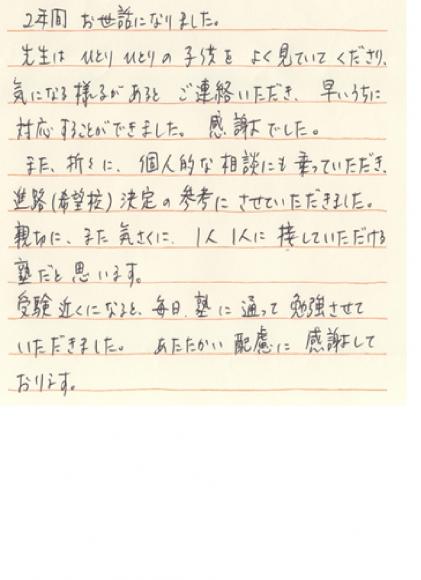 2年間 お世話になりました。
先生は ひとり ひとりの 子供を よく見ていて くださり、
気になる様子があると ご連絡いただき、 早いうちに
対応することができました。 感謝でした。
また、折々に、個人的な相談にも 乗っていただき、
進路(希望校)決定の参考に させていただきました。
親切に、また 気さくに、1人1人に 接していただける
塾だと 思います。
受験 近くになると、毎日、塾に 通って 勉強させて
いただきました。 あたたかい 配慮に 感謝して
おります。